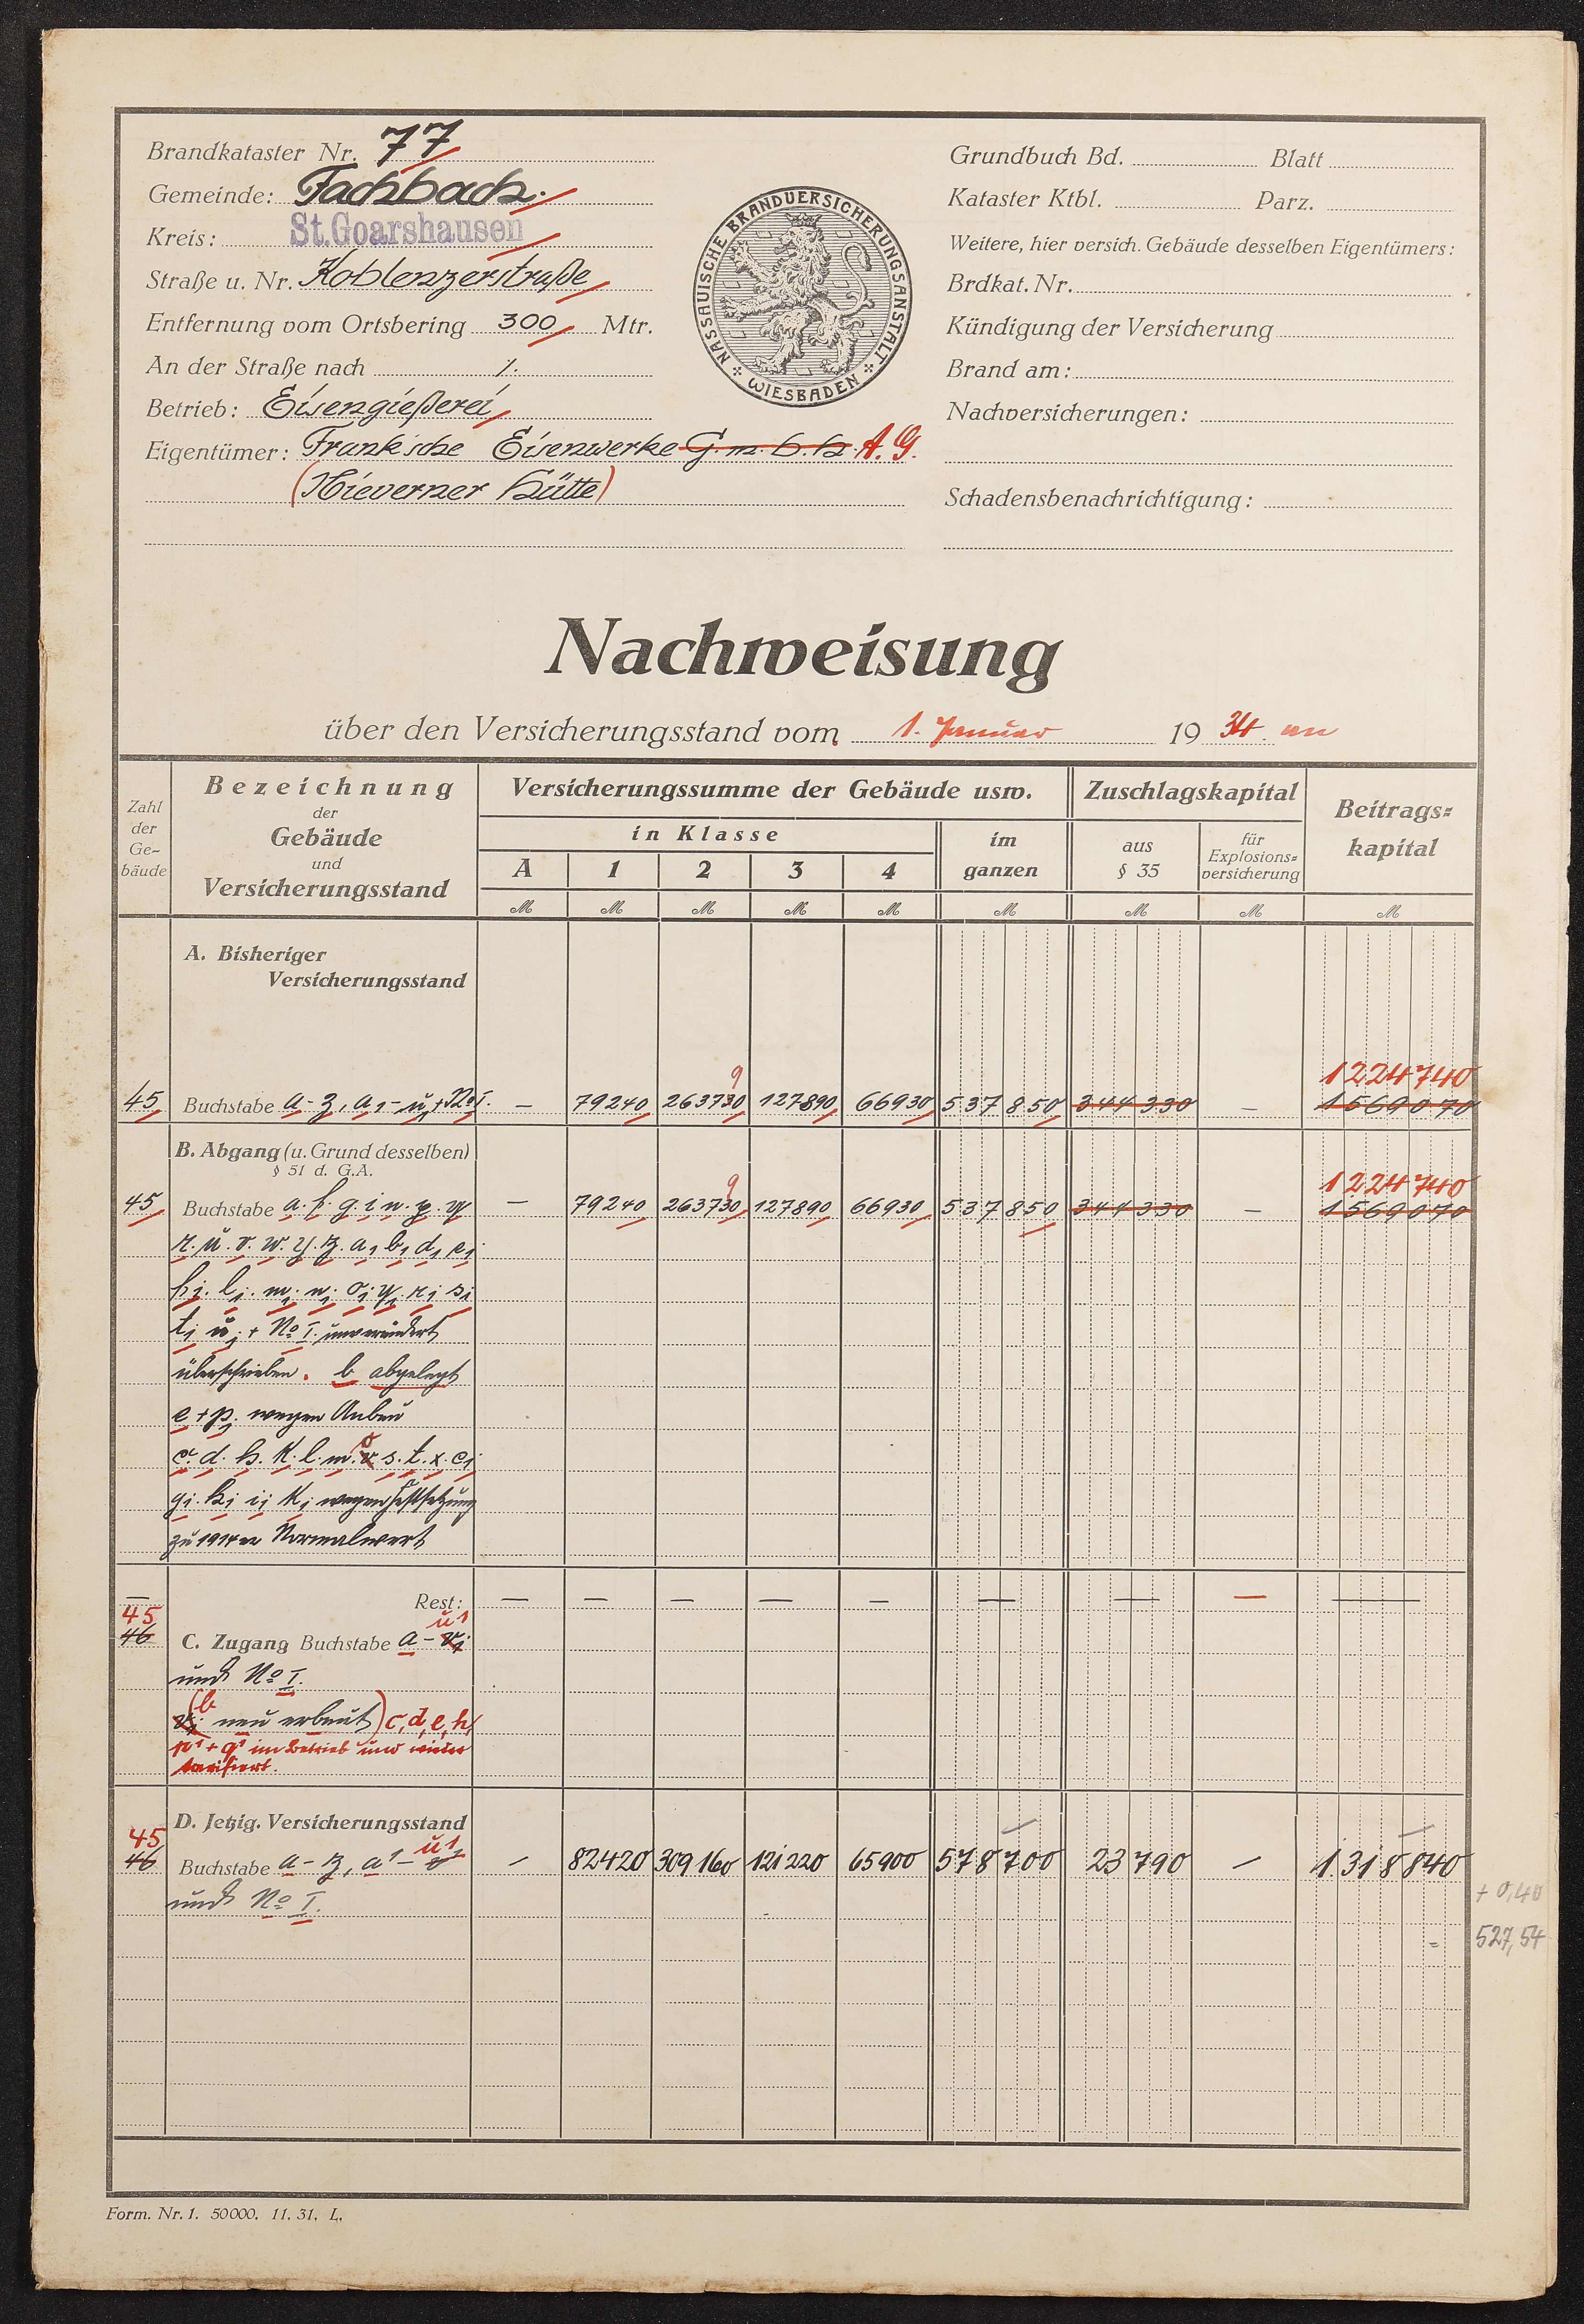 Brandkataster Nr. 77
Gemeinde: Fachbach.
Kreis: St.Goarshausen
Straße u. Nr. Koblenzerstraße
Entfernung vom Ortsbering 300 Mtr.
An der Straße nach /.
Betrieb: Eisengießerei
Eigentümer: Frank'sche Eisenwerke G.m.b.h. A.G.
(Nieverner Hütte)
NASSAUISCHE BRANDVERSICHERUNGSANSTALT
WIESBADEN
Grundbuch Bd. Blatt
Kataster Ktbl. Parz.
Weitere, hier versich. Gebäude desselben Eigentümers:
Brdkat. Nr.
Kündigung der Versicherung
Brand am:
Nachversicherungen:
Schadensbenachrichtigung:
Nachweisung
über den Versicherungsstand vom 1. Januar 1934 an
Zahl der Ge-bäude
Bezeichnung
der
Gebäude
und
Versicherungsstand
Versicherungssumme der Gebäude usw.
in Klasse
A 1 2 3 4
im ganzen
Zuschlagskapital
aus § 35
für Explosions=versicherung
Beitrags=kapital
M M M M M M M M M
A. Bisheriger
Versicherungsstand
9 1224740
45 Buchstabe a-z, a1-u1 + No I. — 79240 263730 127890 66930 537850 344330 — 1569070
B. Abgang (u. Grund desselben)
§ 51 d. G.A.
9 1224740
45 Buchstabe a. f. g. i n. p. q — 79240 263730 127890 66930 537850 344330 — 1569070
r. u. v. w. y. z. a1 b1 d1 e1
f1. l1. m1. n1. o1 q1 r1 s1
t1 u1 + No I. unverändert
überschrieben. b abgelegt
e + p1 wegen Anbau
c. d. h. k. l. m. o s. t. x. c1
g1. h1 i1 k1 wegen Festsetzung
zu 1914er Normalwert
— Rest: — — — — — — — — —
45 u1
46 C. Zugang Buchstabe a - v1
und No I.
(b
v1 neu erbaut) c, d, e, h,
p1 + q1 im Betrieb und wieder
tarifiert.
D. Jetzig. Versicherungsstand
45 u1
46 Buchstabe a - z, a1 - v1 — 82420 309160 121220 65900 578700 23790 — 1318840
und No I.
+ 0,40
= 527,54
Form. Nr. 1. 50000. 11. 31. L.